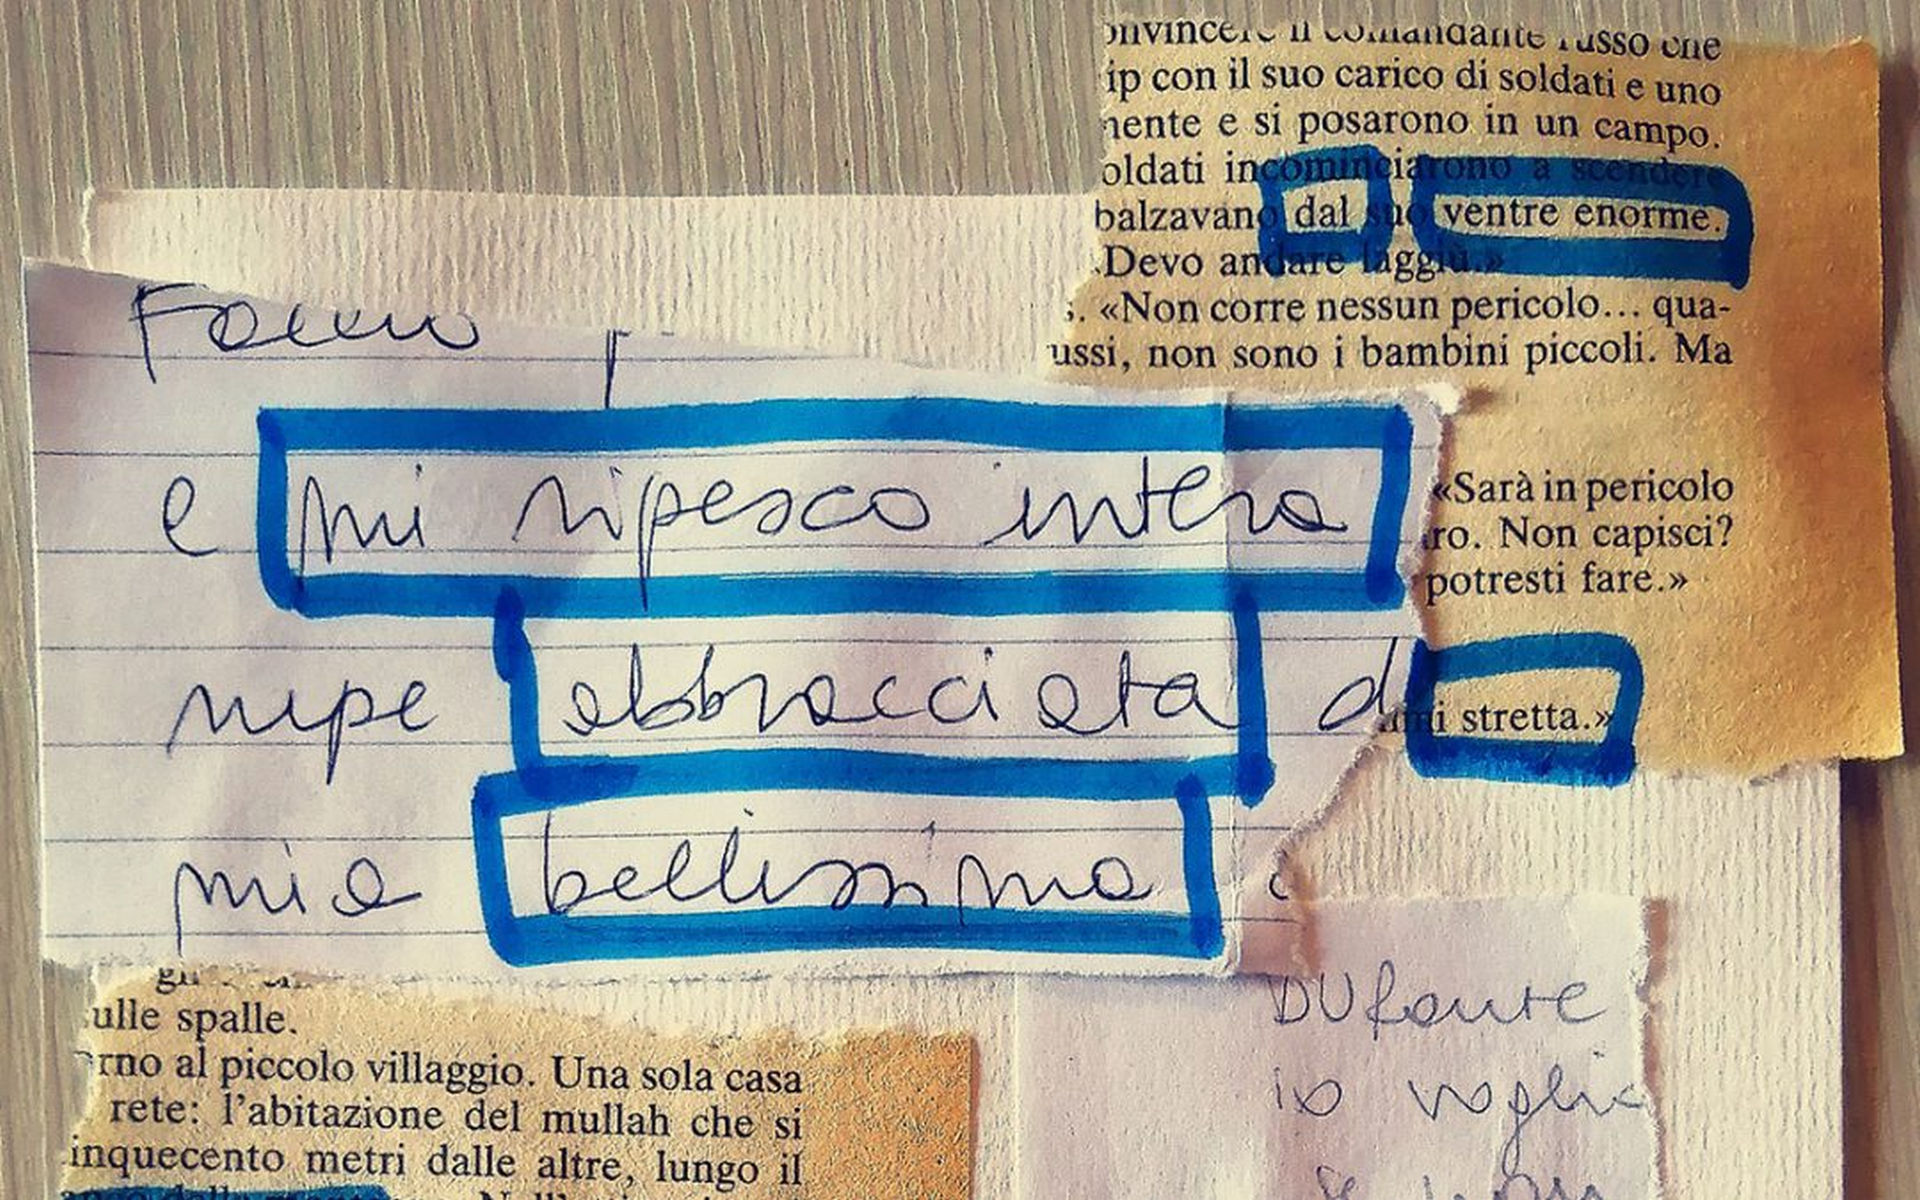 il comandante russo che
ip con il suo carico di soldati e uno
nente e si posarono in un campo.
oldati incominciarono a scendere
balzavano dal suo ventre enorme.
Devo andare laggiù.»
. «Non corre nessun pericolo... qua-
ussi, non sono i bambini piccoli. Ma
«Sarà in pericolo
ro. Non capisci?
potresti fare.»
mi stretta.»
Faccio
e mi ripesco intera
abbracciata d
mia bellissima
DURante
io voglio
ulle spalle.
rno al piccolo villaggio. Una sola casa
rete: l'abitazione del mullah che si
inquecento metri dalle altre, lungo il